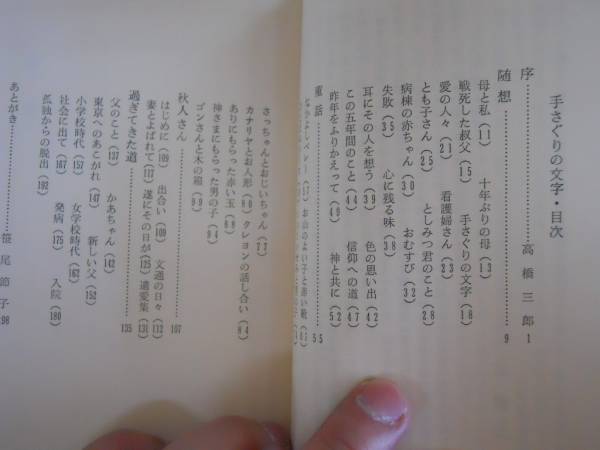 手さぐりの文字・目次
序 高橋三郎 1
随想 9
母と私(11) 十年ぶりの母(13)
戦死した叔父(15) 手さぐりの文字(18)
愛の人々(21) 看護婦さん(23)
とも子さん(25) としみつ君のこと(28)
病棟の赤ちゃん(30) おむすび(32)
失敗(35) 心に残る味(38)
耳にその人を想う(39) 色の思い出(42)
この五年間のこと(44) 信仰への道(47)
昨年をふりかえって(49) 神と共に(52)
童話 55
お山のよい子と赤い靴
さっちゃんとおじいちゃん(72)
カナリヤとお人形(80) クレヨンの話し合い(84)
ありにもらった赤い玉(88)
神さまにもらった男の子(94)
ゴンさんと木の箱(99)
秋人さん 107
はじめに(109) 出合い(109) 文通の日々(112)
妻とよばれて(117) 遂にその日が(125) 遺愛集(131)
過ぎてきた道 135
父のこと(137) かあちゃん(142)
東京へのあこがれ(147) 新しい父(152)
小学校時代(157) 女学校時代(162)
社会に出て(167) 発病(175) 入院(180)
孤独からの脱出(192)
あとがき 笹尾節子 98